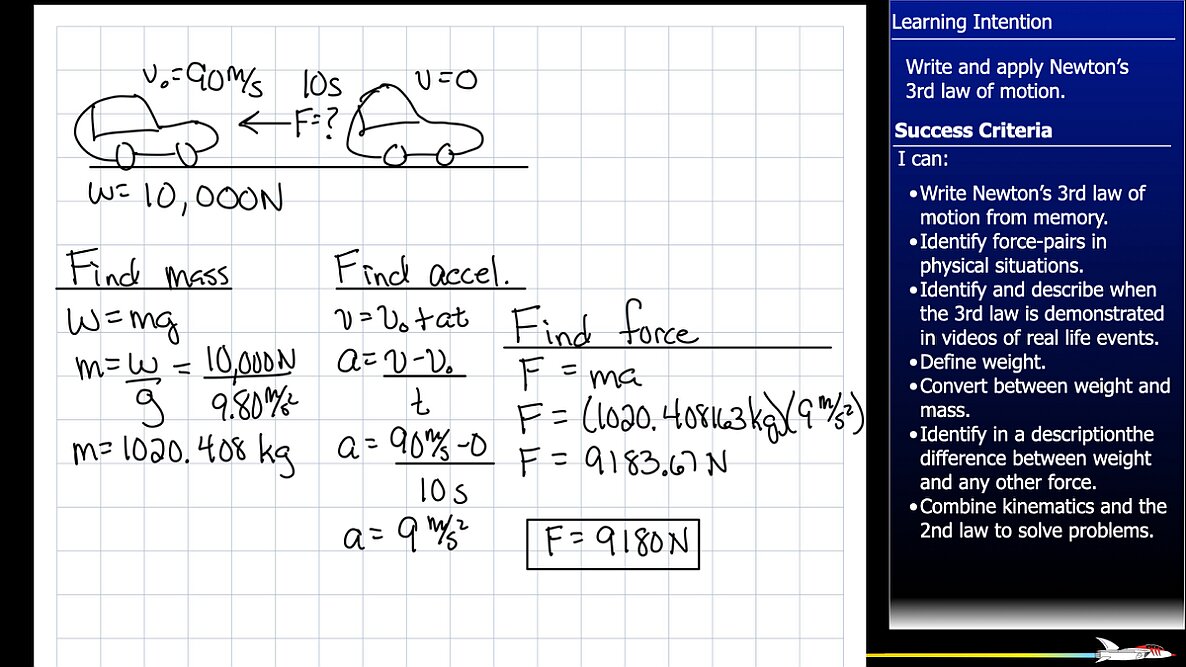 v₀=90m/s 10s v=0
F=?
w=10,000N
Find mass
W=mg
m=w/g = 10,000N/9.80m/s²
m=1020.408 kg
Find accel.
v=v₀+at
a=v-v₀/t
a=90m/s-0/10s
a=9 m/s²
Find force
F=ma
F=(1020.408163kg)(9m/s²)
F=9183.67N
F=9180N
Learning Intention
Write and apply Newton’s
3rd law of motion.
Success Criteria
I can:
•Write Newton’s 3rd law of
motion from memory.
•Identify force-pairs in
physical situations.
•Identify and describe when
the 3rd law is demonstrated
in videos of real life events.
•Define weight.
•Convert between weight and
mass.
•Identify in a descriptionthe
difference between weight
and any other force.
•Combine kinematics and the
2nd law to solve problems.